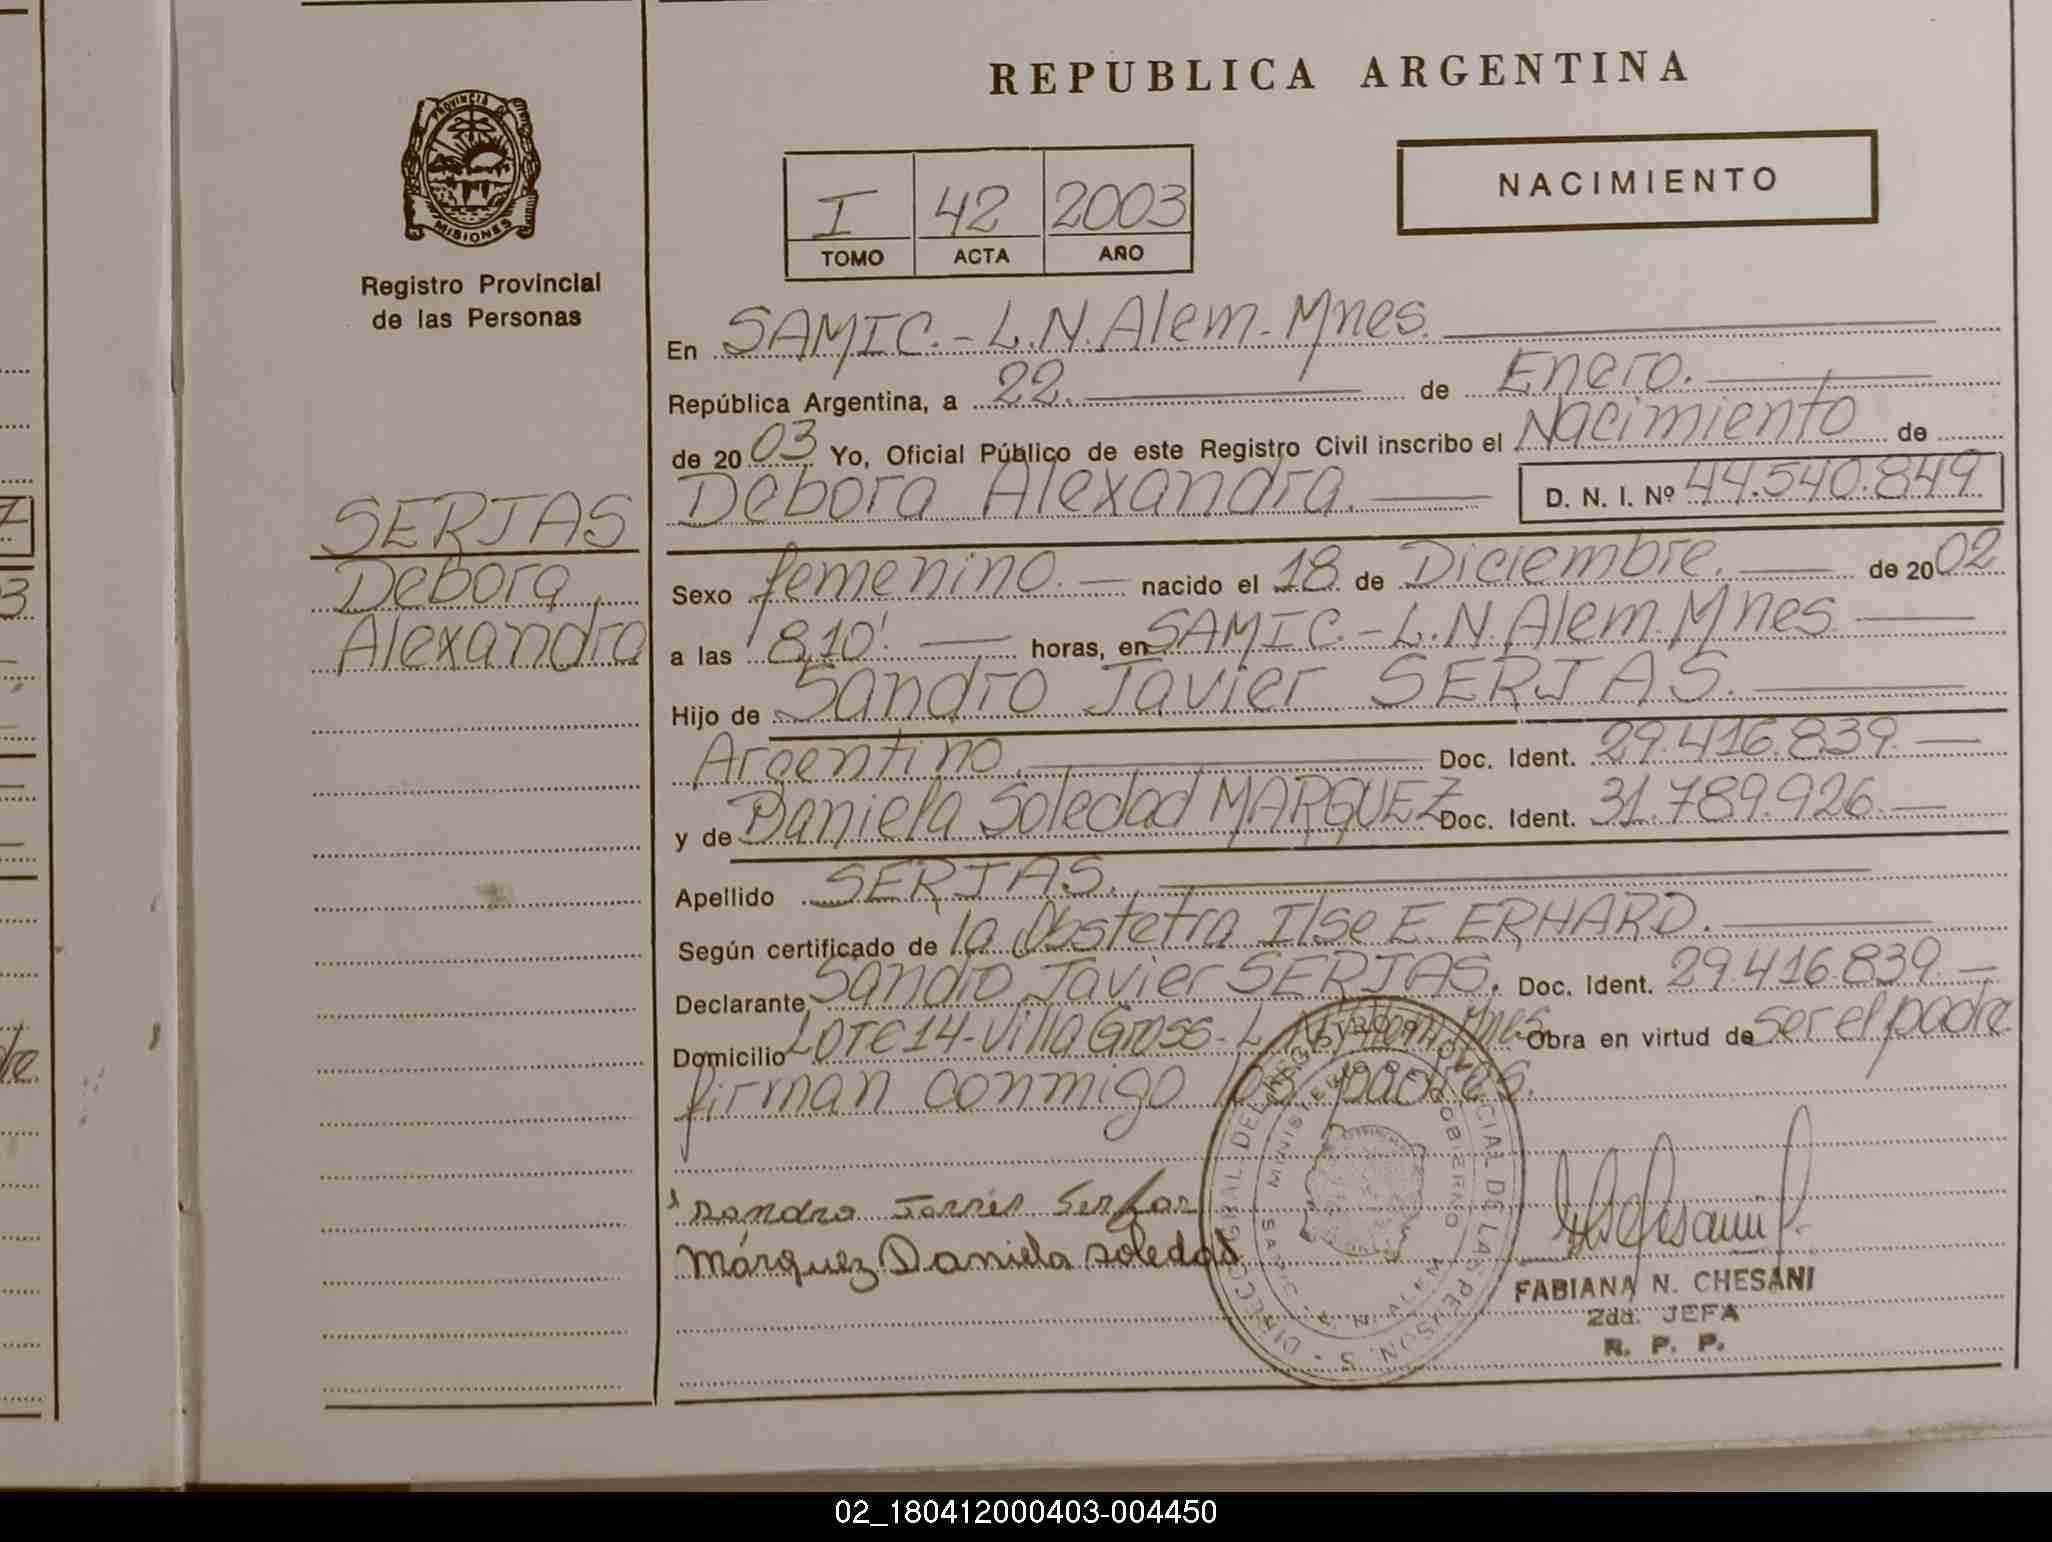 REPUBLICA ARGENTINA
PROVINCIA DE
MISIONES
Registro Provincial
de las Personas
I 42 2003
TOMO ACTA AÑO
NACIMIENTO
En SAMIC.- L.N. Alem- Mnes.
República Argentina, a 22. de Enero.
de 2003 Yo, Oficial Público de este Registro Civil inscribo el Nacimiento de
Debora Alexandra. D. N. I. Nº 44.540.849
SERJAS
Debora
Alexandra
Sexo femenino. nacido el 18 de Diciembre. de 2002
a las 8,10'. horas, en SAMIC.- L.N. Alem. Mnes
Hijo de Sandro Javier SERJAS.
Argentino. Doc. Ident. 29.416.839.
y de Daniela Soledad MARQUEZ Doc. Ident. 31.789.926.
Apellido SERJAS.
Según certificado de la Obstetra Ilse E. ERHARD.
Declarante Sandro Javier SERJAS. Doc. Ident. 29.416.839.
Domicilio LOTE 14- Villa Gross- L.N. Alem Mnes Obra en virtud de ser el padre
firman conmigo los padres.
Márquez Daniela Soledad
FABIANA N. CHESANI
2da. JEFA
R. P. P.
02_180412000403-004450